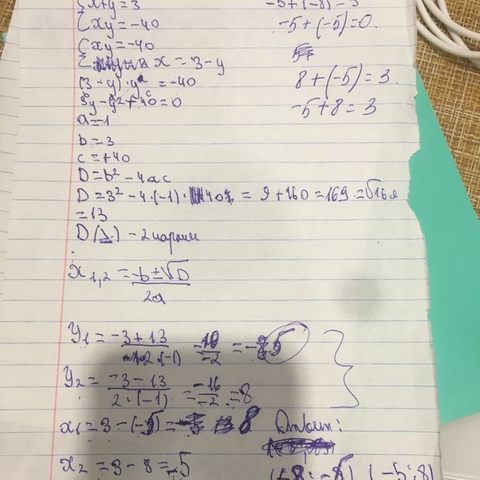 {x+y=3
{xy=-40
{xy=-40
{ x=3-y
(3-y)·y=-40
3y-y²+40=0
a=-1
b=3
c=+40
D=b²-4ac
D=3²-4·(-1)·40=9+160=169=√169
=13
D(Δ)-2
x1,2=-b±√D/2a
y1=-3+13/2·(-1)=10/-2=-5
y2=-3-13/2·(-1)=-16/-2=8
x1=3-(-5)=8
x2=3-8=-5
-5+(-5)=0.
8+(-5)=3.
-5+8=3
Ответ:
(+8;-5) (-5;8)